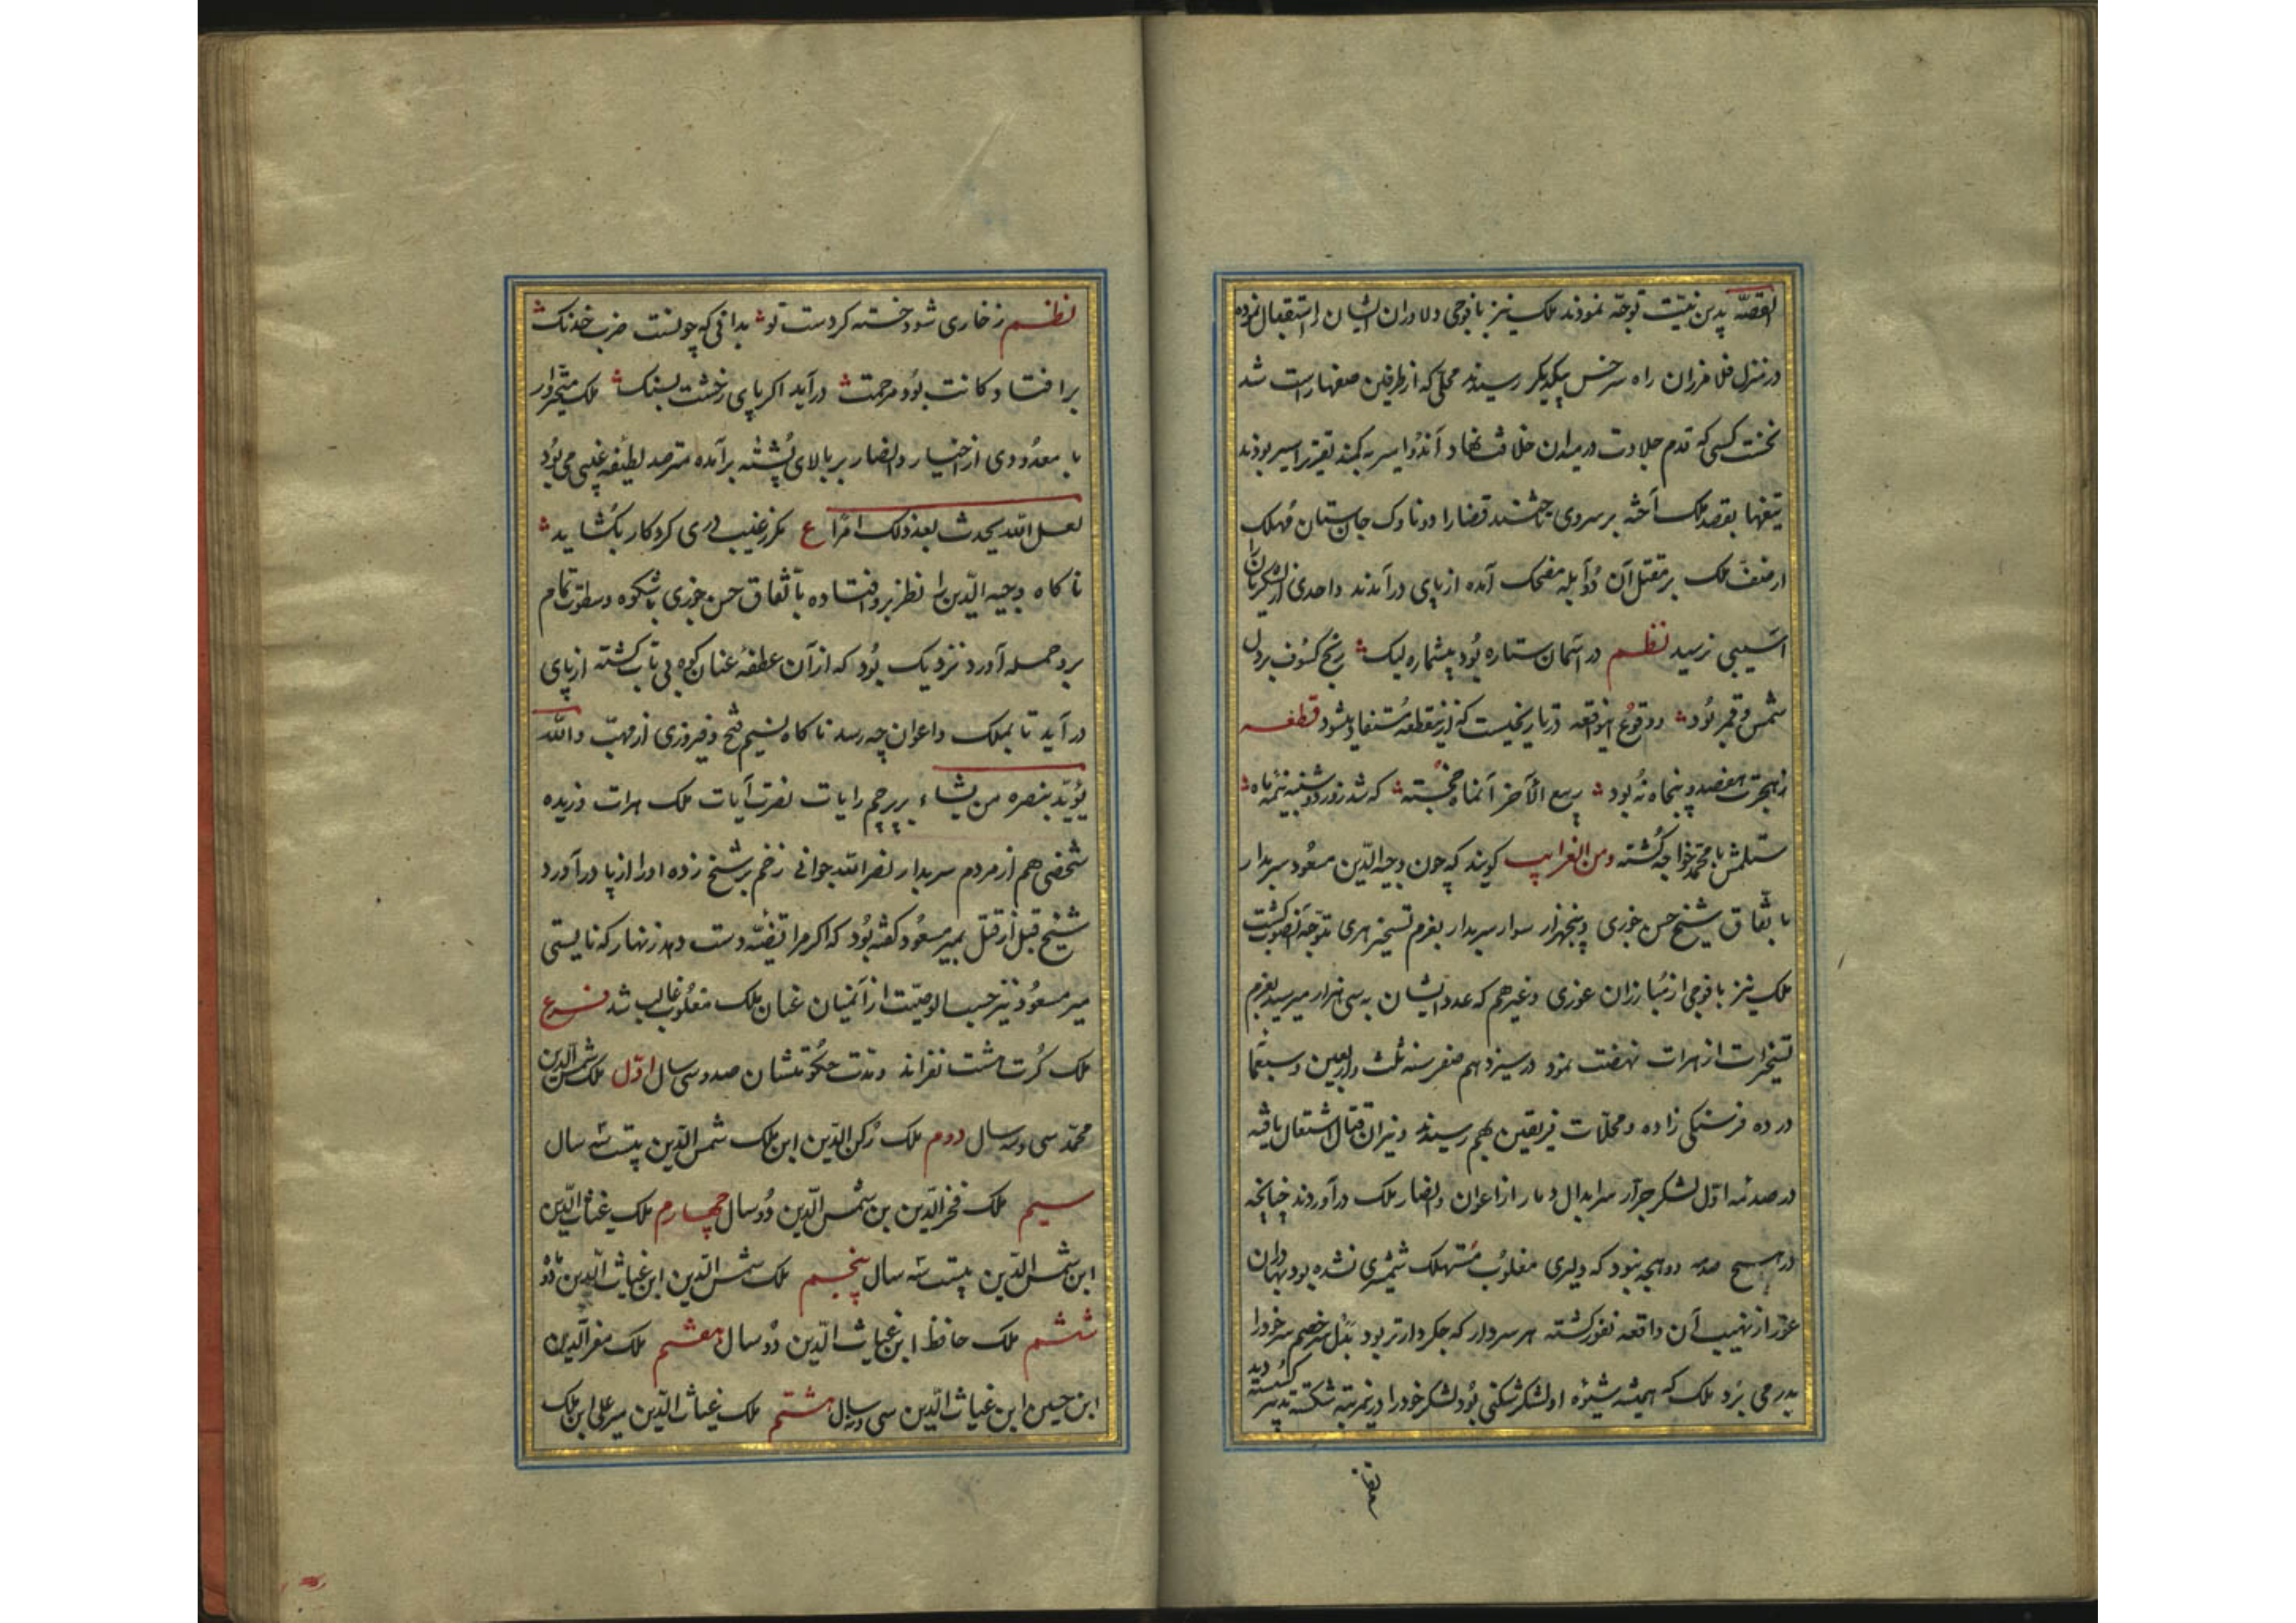 القصّه بدین نیّت توجّه نمودند ملک نیز با فوجی دلاوران ایشان را استقبال نموده
در منزل فلامرزان راه سرخس بیکدیکر رسیدند محلی که از طرفین صفها راست شد
نخست کسی که قدم جلادت در میدان خلاف نهاد آندو امیر بودند
تیغها بقصد ملک آخته بر سر وی تاختند قضا را دو ناوک جان ستان مهلک
از صف ملک بر مقتل آن دو آمده از پای درآمدند و احدی از لشکریان را
آسیبی نرسید نظم در آسمان ستاره بود بیشماره لیک رنج کسوف بر دل
شمس و قمر بود و وقوع اینواقعه در تاریخیست که ازینقطعه مستفاد میشود قطعه
ز هجرت هفصد و پنجاه نه بود ربیع الآخر آنماه خجسته که شد روز دوشنبه نیمه ماه
ستلمش با محمد خواجه کشته ومن الغرایب کویند که چون وجیه الدّین مسعود سربدار
باتّفاق شیخ حسن جوری و پنجهزار سوار سربدار بعزم تسخیر هری متوجّه آنصوب کشت
ملک نیز با فوجی از مبارزان غوری و غیرهم که عدد ایشان به سی هزار میرسید بعزم
تسخیر از هرات نهضت نمود در سیزدهم صفر سنه ثلث و اربعین و سبعمأ
در ده فرسنکی زاده و محلّات فریقین بهم رسیدند و نیران قتال اشتعال یافته
در صدمهٔ اوّل لشکر جرّار سرابدال دمار از اعوان و انصار ملک درآوردند چنانچه
در هیچ صدمه دو هجه نبود که دلیری مغلوب مستهلک شمشیری نشده بود بهادران
غور از نهیب آن واقعه نفور کشته هر سردار که جکردارتر بود بنذل سر خصم سر خود را
بدر می برد ملک که همیشه شیوه او لشکر شکنی بود لشکر خود را درینمرتبه شکسته کسسته دید
نظم
نظم ز خاری شود خسته کر دست تو بدانی که چونست ضرب خدنک
بر افتادکانت بود مرحمت درآید اکر پای رخشت بسنک ملک متحیّروار
با معدودی از اخیار و انصار بر بالای پشته برآمده مترصد لطیفه غیبی می بود
لعل الله یحدث بعد ذلک امرًا ع مکر ز غیب دری کردکار بکشاید
ناکاه وجیه الدّین را نظر برو افتاده باتّفاق حسن جوری با شکوه و سطوت تمام
برو حمله آورد نزدیک بود که از آن عطفهٔ عنان کوه بی تاب کشته از پای
درآید تا بملک و اعوان چه رسد ناکاه نسیم فتح و فیروزی از مهبّ والله
یؤیّد بنصره من یشاء بر پرچم رایات نصرت آیات ملک هرات وزیده
شخصی هم از مردم سربدار نصرالله جوانی زخم بر شیخ زده او را از پا درآورد
شیخ قبل از قتل بمیر مسعود کفته بود که اکر مرا قضیّه دست دهد زنهار که نایستی
میر مسعود نیز حسب الوصیّت از آنمیان عنان ملک مغلوب غالب شد فرع
ملک کرت هشت نفراند و مدت حکومتشان صد و سی سال اوّل ملک شمس الدین
محمّد سی و سه سال دوم ملک رکن الدّین ابن ملک شمس الدّین بیست سه سال
سیم ملک فخرالدّین بن شمس الدّین دو سال چهارم ملک غیاث الدّین
ابن شمس الدّین بیست سه سال پنجم ملک شمس الدّین ابن غیاث الدّین دو
ششم ملک حافظ ابن غیاث الدّین دو سال هفتم ملک معزالدین
ابن حسین ابن غیاث الدّین سی و سال هشتم ملک غیاث الدّین میر علی ابن ملک